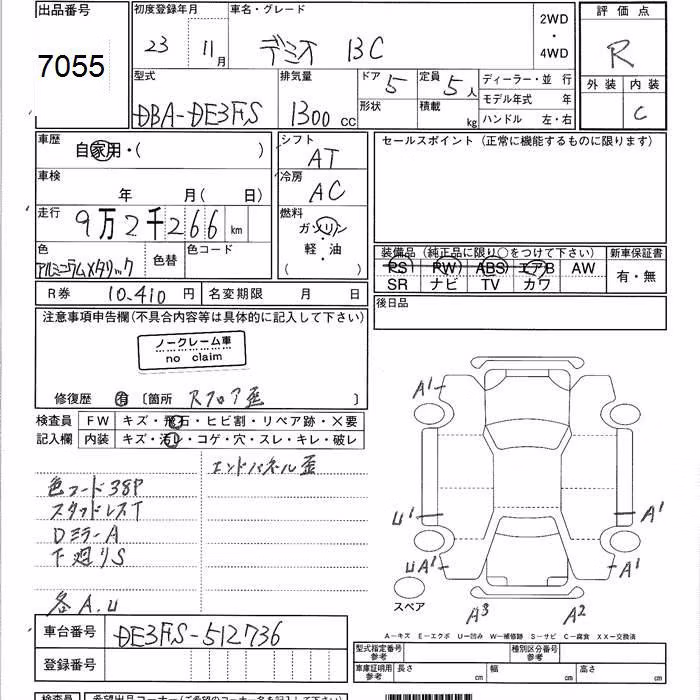 出品番号
7055
初度登録年月
23 11月
車名・グレード
デミオ 13C
2WD
・
4WD
評価点
R
外装 内装
C
型式
DBA-DE3FS
排気量
1300 cc
ドア 5
形状
定員 5人
積載 kg
ディーラー・並 行
モデル年式 年
ハンドル 左・右
車歴
自家用・( )
車検
年 月( 日)
走行
9万2千266 km
色
アルミニウムメタリック
色替
色コード
シフト
AT
冷房
AC
燃料
ガソリン
軽・油
( )
セールスポイント (正常に機能するものに限ります)
装備品 (純正品に限り○をつけて下さい)
新車保証書
PS PW ABS エアB AW
有・無
SR ナビ TV カワ
後日品
R券 10.410 円 名変期限 月 日
注意事項申告欄(不具合内容等は具体的に記入して下さい)
ノークレーム車
no claim
修復歴 有 〔箇所 Rフロア歪
検査員 FW キズ・飛石・ヒビ割・リペア跡・X要
記入欄 内装 キズ・汚レ・コゲ・穴・スレ・キレ・破レ
エンドパネル歪
色コード38P
スタッドレスT
DミラーA
下廻りS
各A.U
A1
U1
A1
UA1
A1
スペア
A3
A2
A－キズ E－エクボ U－凹み W－補修跡 S－サビ C－腐食 XX－交換済
車台番号 DE3FS-512736
登録番号
型式指定番号
参考
種別区分番号
参考
車庫証明用
参考
長さ cm 幅 cm 高さ cm
検査員 希望出品コーナー(ご希望のコーナー名を記入して下さい)